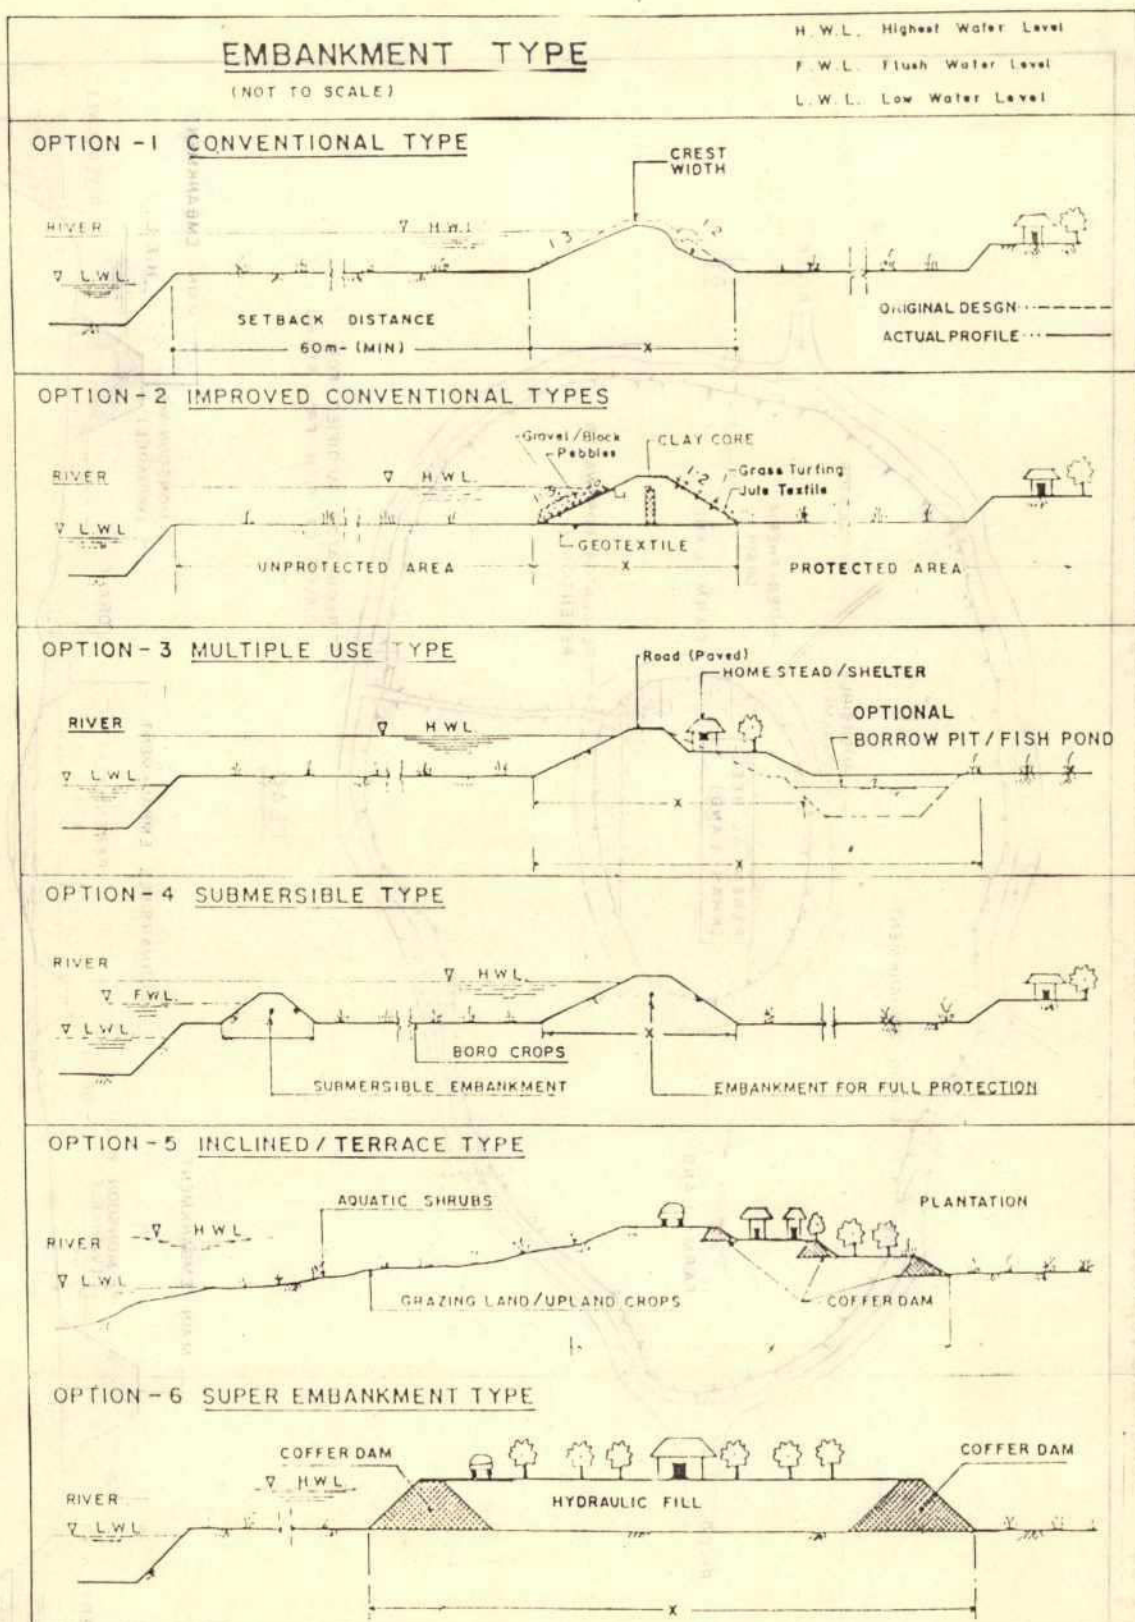 EMBANKMENT TYPE
(NOT TO SCALE)
H.W.L. Highest Water Level
F.W.L. Flush Water Level
L.W.L. Low Water Level
OPTION -1 CONVENTIONAL TYPE
CREST
WIDTH
RIVER
H.W.L
1:3
L.W.L.
SETBACK DISTANCE
60m- (MIN)
X
ORIGINAL DESGN
ACTUAL PROFILE
OPTION - 2 IMPROVED CONVENTIONAL TYPES
Gravel/Block
Pebbles
CLAY CORE
RIVER
H.W.L.
1:2
Grass Turfing
Jute Textile
L.W.L.
GEOTEXTILE
UNPROTECTED AREA
X
PROTECTED AREA
OPTION - 3 MULTIPLE USE TYPE
Road (Paved)
HOMESTEAD/SHELTER
RIVER
H.W.L.
OPTIONAL
BORROW PIT/FISH POND
L.W.L.
X
X
OPTION - 4 SUBMERSIBLE TYPE
RIVER
H.W.L.
F.W.L.
L.W.L.
X
BORO CROPS
SUBMERSIBLE EMBANKMENT
EMBANKMENT FOR FULL PROTECTION
OPTION - 5 INCLINED / TERRACE TYPE
AQUATIC SHRUBS
PLANTATION
H.W.L.
RIVER
L.W.L.
GRAZING LAND/UPLAND CROPS
COFFER DAM
OPTION - 6 SUPER EMBANKMENT TYPE
COFFER DAM
COFFER DAM
H.W.L.
RIVER
HYDRAULIC FILL
L.W.L.
X